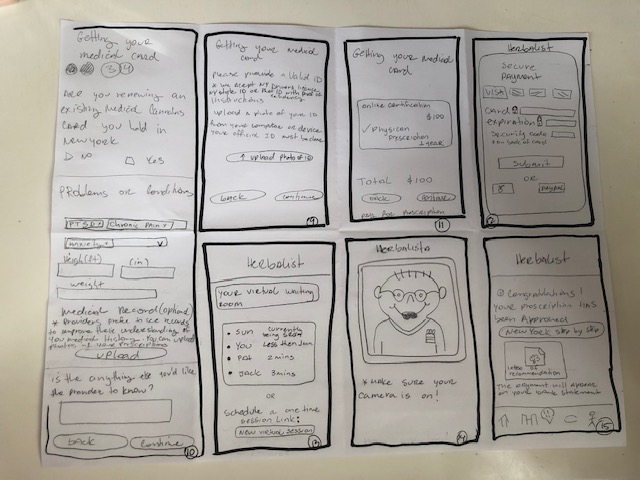 Getting your
medical card
3 4
Are you renewing an
existing medical Cannabis
card you hold in
New York
NO
Yes
Problems or Conditions
PTSD x
Chronic Pain x
Anxiety x
V
Heigh(ft)
(in)
weight
Medical Record (optional)
* Providers prefer to see records
to improve there understanding of
you medical History. You can upload
photos of your prescriptions
upload
is the anything else you'd like
the provider to know?
back
Continue
10
Getting your medical
card
please provide a Valid ID
Instructions
upload a photo of your ID
from your computer or device
your official ID must be clear
↑ upload Photo of ID
back
continue
9
Getting your medical
card
online certification
$100
✓ Physican
prescription
1 year
Total $100
back
continue
pay for prescription
11
Herbalist
Secure
payment
VISA
card #
expiration
Security code
Submit
OR
PayPal
12
Herbalist
your virtual waiting
room
• Sun currently
being seen
• You Less then 1min
• Pat 2 mins
• Jack 3 mins
OR
Schedule a one time
session Link:
New virtual session
13
Herbalist
* Make sure your
Camera is on!
14
Herbalist
Congratulations!
your prescription has
been Approved
New York step by step
letter of
recommendation
The payment will appear
on your bank statement
15